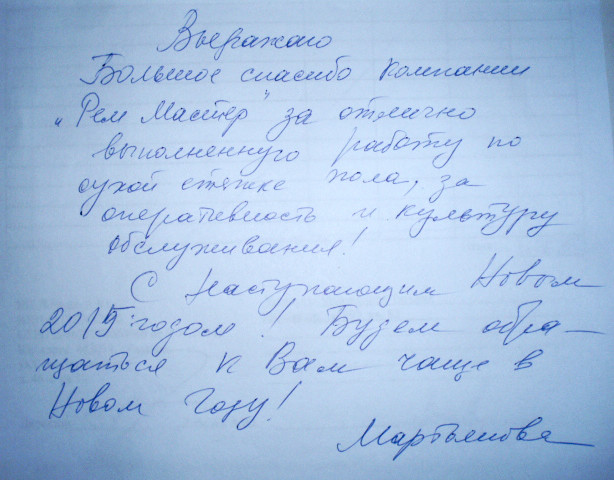 Выражаю
Большое спасибо компании
„Рем Мастер" за отлично
выполненную работу по
сухой стяжке пола, за
оперативность и культуру
обслуживания!
С Наступающим Новым
2015 годом! Будем обра-
щаться к Вам чаще в
Новом Году!
Мартьянова